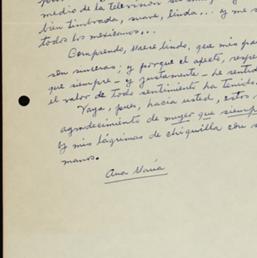 medio de la televisión su
bien timbrada, suave, linda... y me
todos los mexicanos...
Comprendo, que mis pa
son sinceras; y porque el afecto, respe
que siempre – y justamente – he sentido
el valor de todo sentimiento ha tenido,
Vaya, pues, hacia usted, estos
agradecimiento de mujer que siemp
y mis lágrimas de chiquilla con
manos.
Ana María